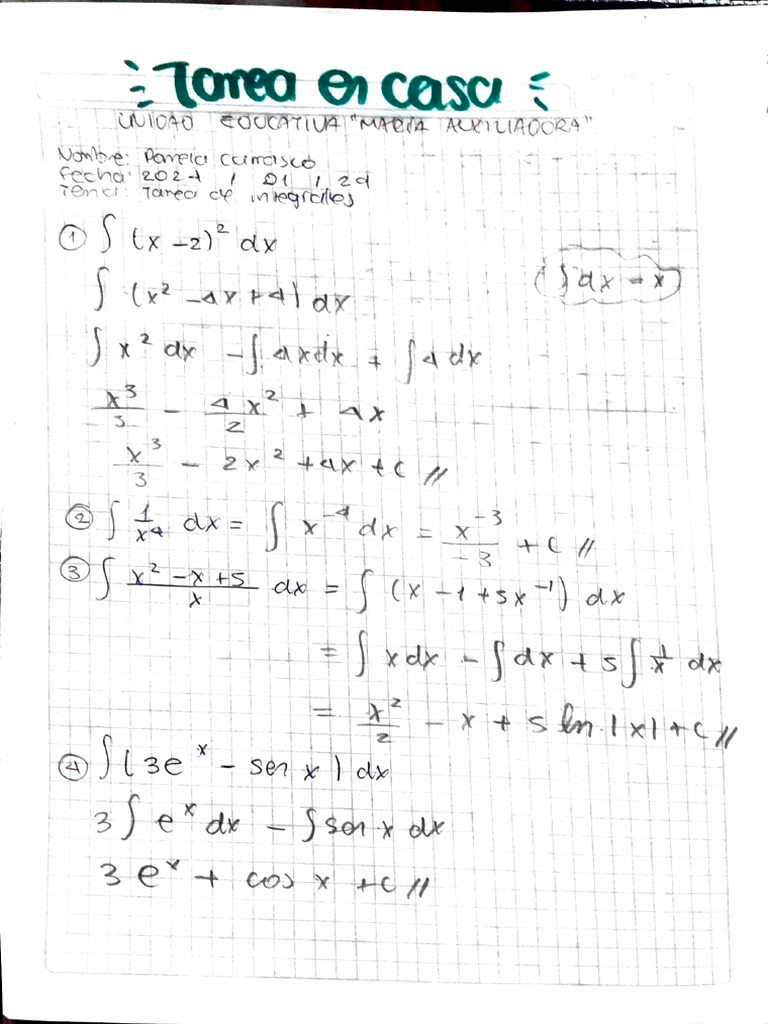 Tarea en casa
UNIDAD EDUCATIVA "MARIA AUXILIADORA"
Nombre: Pamela Carrasco
Fecha: 2024 / 01 / 29
Tema: Tarea de integrales
① ∫ (x - 2)² dx
∫ (x² - 4x + 4) dx
(∫ dx = x)
∫ x² dx - ∫ 4x dx + ∫ 4 dx
x³/3 - 4x²/2 + 4x
x³/3 - 2x² + 4x + c //
② ∫ 1/x⁴ dx = ∫ x⁻⁴ dx = x⁻³/-3 + c //
③ ∫ x² - x + 5/x dx = ∫ (x - 1 + 5x⁻¹) dx
= ∫ x dx - ∫ dx + 5 ∫ 1/x dx
= x²/2 - x + 5 ln |x| + c //
④ ∫ (3eˣ - sen x) dx
3 ∫ eˣ dx - ∫ sen x dx
3 eˣ + cos x + c //